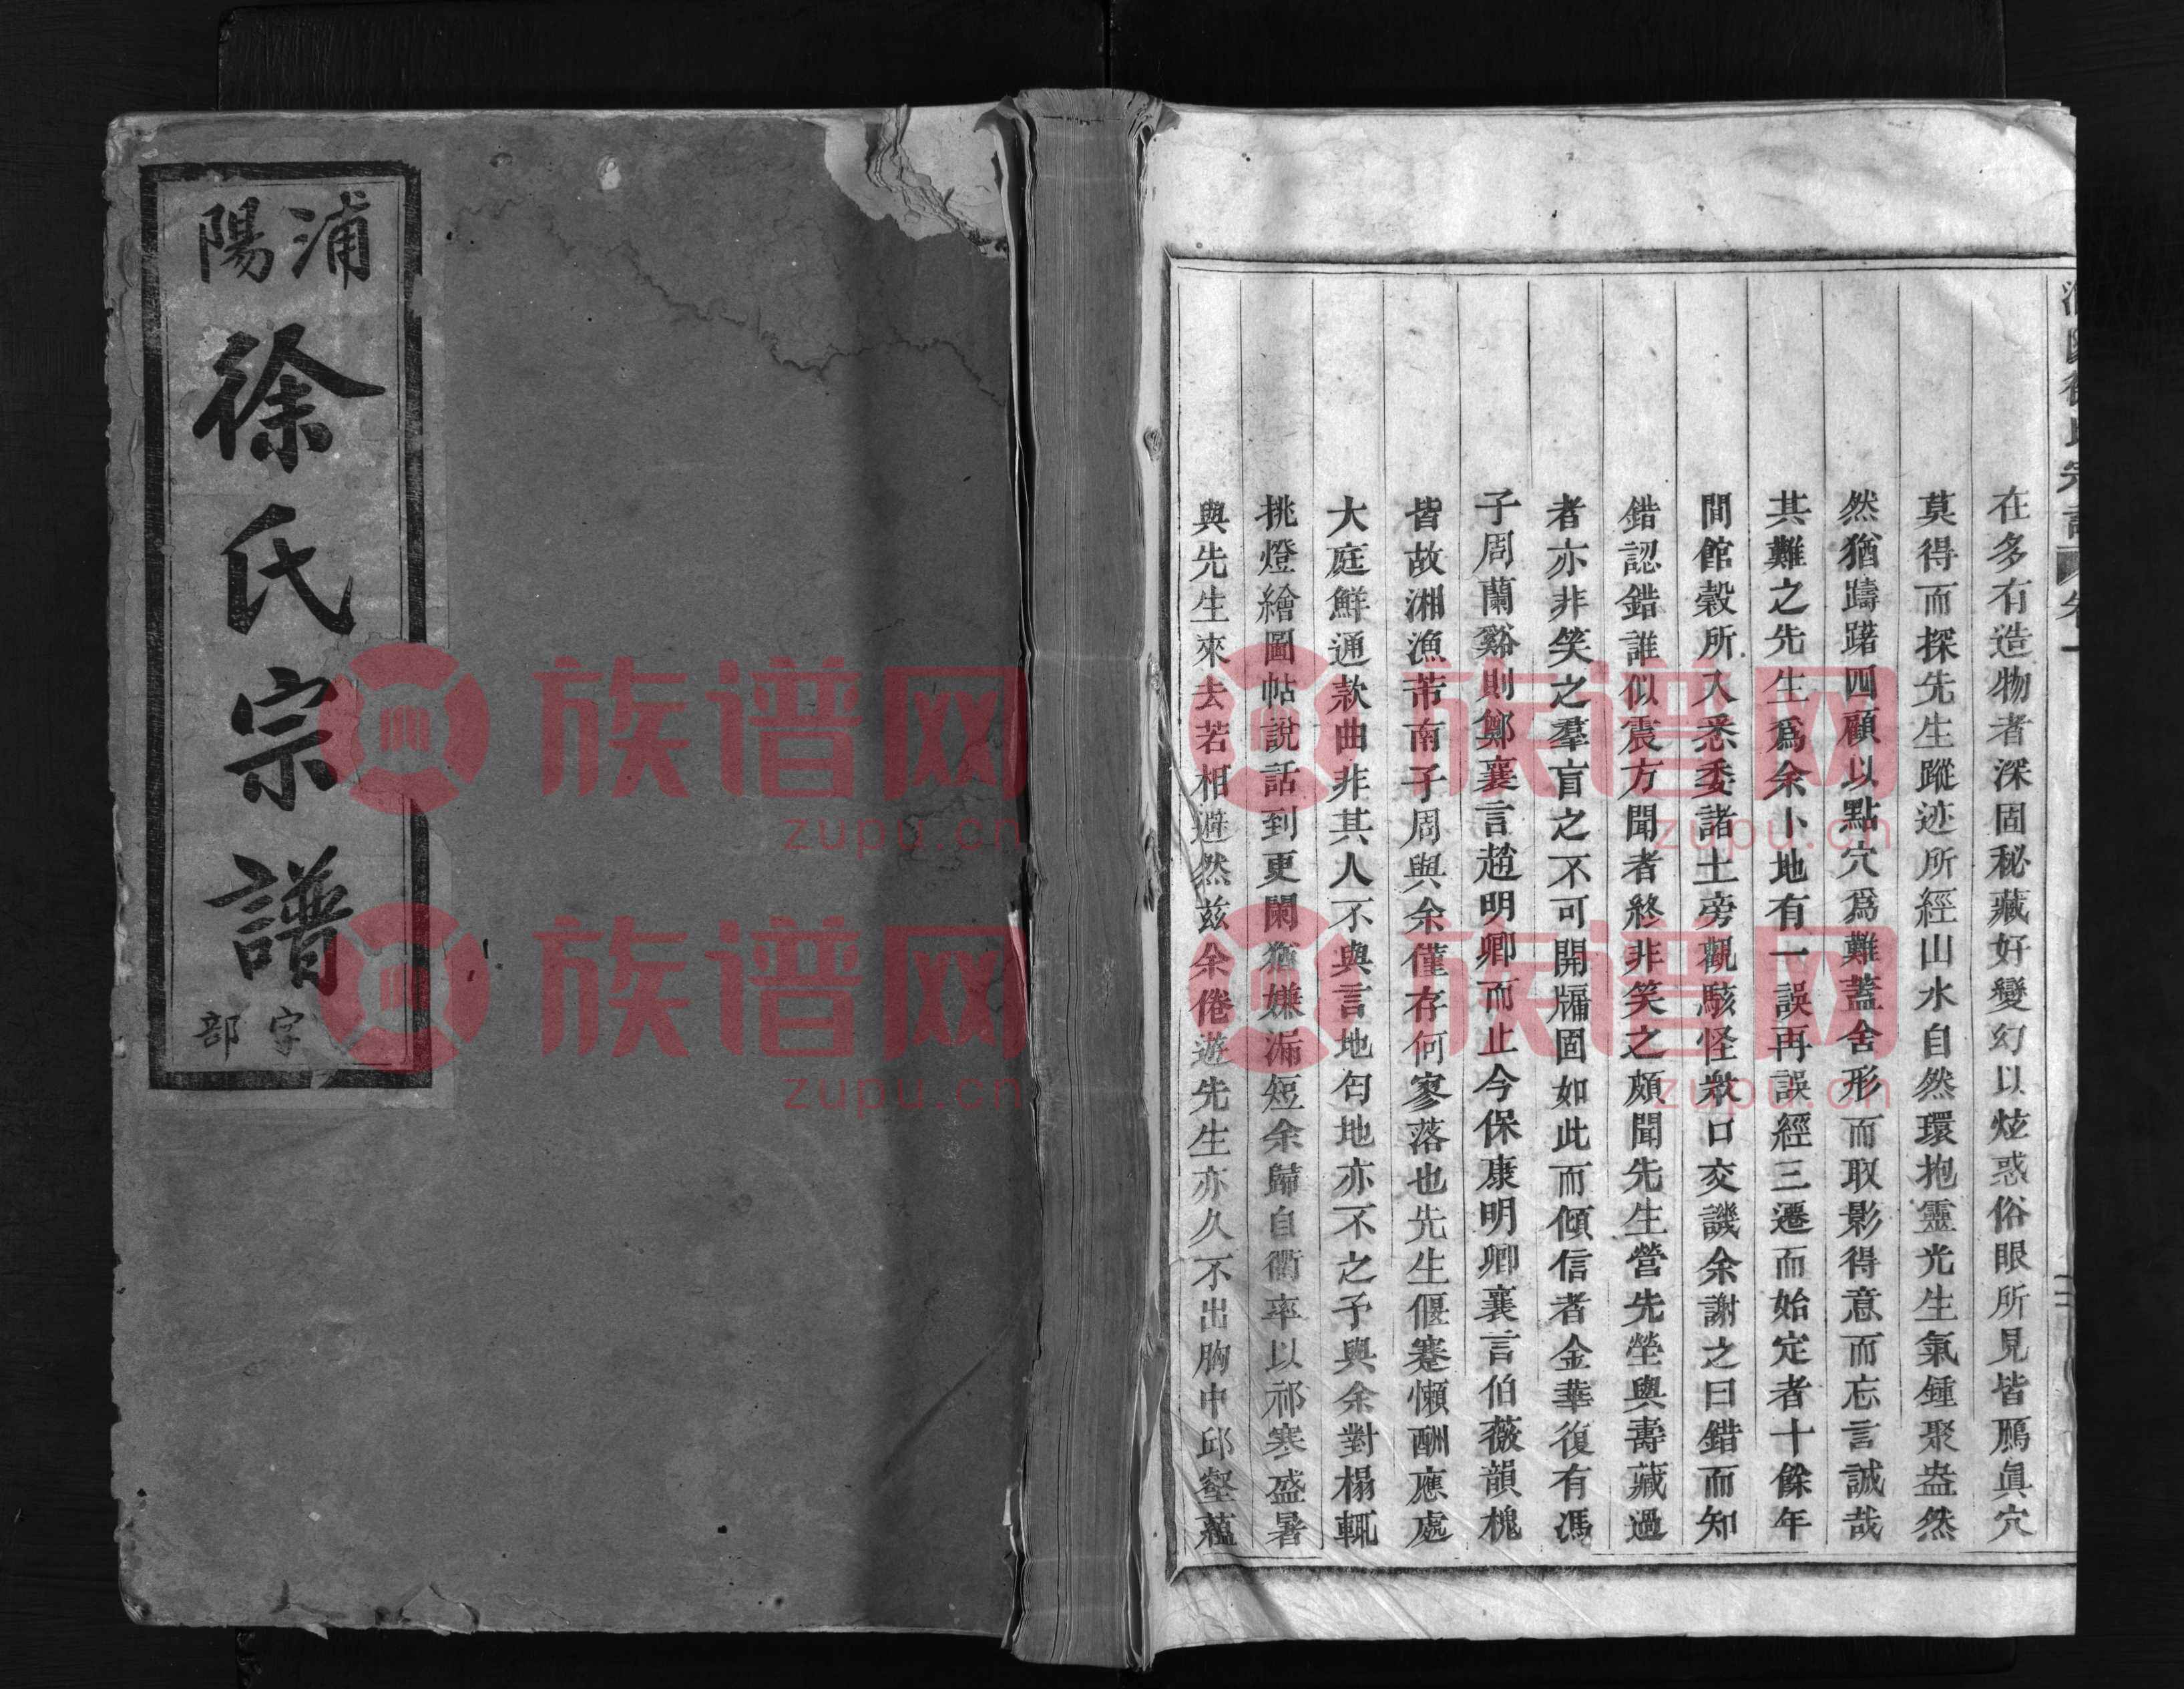 浦陽
徐氏宗譜
字部
在多有造物者深固秘藏好變幻以炫惑俗眼所見皆鴈眞穴
莫得而探先生蹤迹所經山水自然環抱靈光生氣鍾聚盎然
然猶躊躇四顧以點穴爲難蓋舍形而取影得意而忘言誠哉
其難之先生爲余卜地有一誤再誤經三遷而始定者十餘年
間館穀所入悉委諸土旁觀駭怪衆口交譏余謝之曰錯而知
錯認錯誰似震方聞者終非笑之頗聞先生營先塋與壽藏過
者亦非笑之羣盲之不可開牖固如此而傾信者金華復有馮
子周蘭谿則鄭襄言趙明卿而止今保康明卿襄言伯薇韻槐
皆故湘漁芾南子周與余僅存何寥落也先生偃蹇懶酬應處
大庭鮮通款曲非其人不與言地匄地亦不之予與余對榻輒
挑燈繪圖帖說話到更闌猶嫌漏短余歸自衢率以祁寒盛暑
與先生來去若相避然茲余倦遊先生亦久不出胸中邱壑蘊
族谱网
zupu.cn
族谱网
zupu.cn
族谱网
zupu.cn
族谱网
zupu.cn